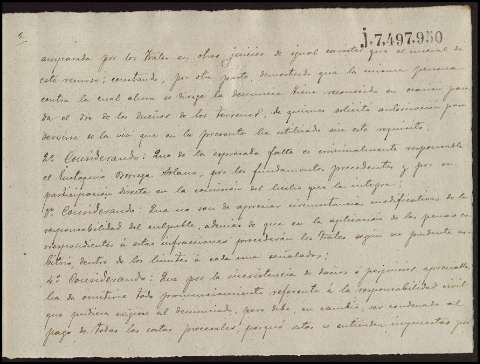 j.7,497,950
amparada por los Trales en otros juicios de igual caracter que el inicial de
este recurso; constando, por otra parte demostrado que la misma persona
contra la cual ahora se dirige la denuncia tiene reconocido en
da el dro de los dueños de los terrenos, de quienes solicitó autorización para
servirse de la via que en la presente ha utilizado sin este requisito.
2º Considerando: Que de la expresada falta es criminalmente responsable
el Eustaquio por los fundamentos precedentes y por su
participación directa en la comisión del hecho que la integra;
3º Considerando: Que no son de apreciar circunstancias modificativas de la
responsabilidad del culpable, además de que en la aplicación de las penas co-
rrespondientes á estas infracciones procederán los Trales según su prudente ar-
bitrio, dentro de los limites á cada una señalados;
4º Considerando: Que por la inexistencia de daños ó perjuicios apreciables
ha de omitirse todo pronunciamiento referente á la responsabilidad civil
que pudiera exigirse al denunciado, pero debe, en cambio, ser condenado al
pago de todas las costas procesales, porque estas se entienden impuestas por